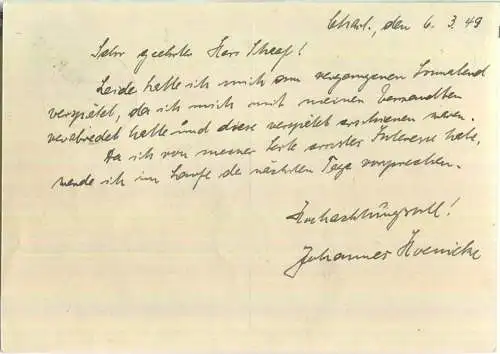 Charl., den 6. 3. 49
Sehr geehrter Herr
Leider hatte ich mich am vergangenen Sonnabend
verspätet, da ich mich mit meinen Verwandten
verabredet hatte und diese verspätet erschienen waren.
Da ich von meiner Seite ernstes Interesse habe,
werde ich im Laufe der nächsten Tage vorsprechen.
Hochachtungsvoll!
Johannes Hoenicke